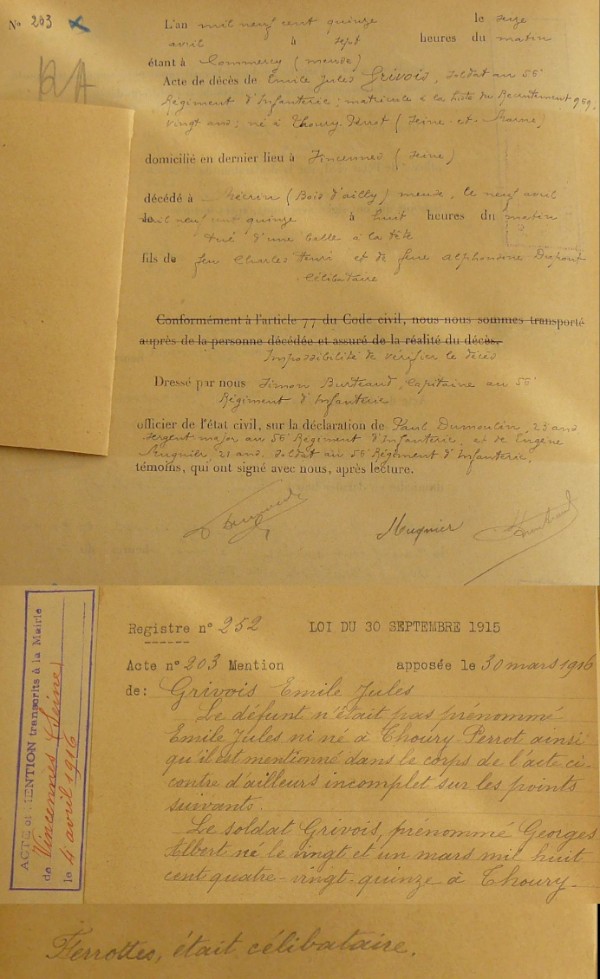 N° 203
L'an mil neuf cent quinze le seize
avril à sept heures du matin
étant à Commercy (meuse)
Acte de décès de Emile Jules Grivois, soldat au 56e
Régiment d'Infanterie; matricule à la liste du Recrutement 959.
vingt ans; né à Thoury-Perrot (Seine-et-Marne)
domicilié en dernier lieu à Vincennes (Seine)
décédé à Mécrin (Bois d'ailly) meuse, le neuf avril
mil neuf cent quinze à huit heures du matin
tué d'une balle à la tête
fils de feu Charles Henri et de feue Alphonsine
célibataire
Conformément à l'article 77 du Code civil, nous nous sommes transporté
auprès de la personne décédée et assuré de la réalité du décès.
Impossibilité de vérifier le décès
Dressé par nous Simon Burteaud, Capitaine au 56e
Régiment d'Infanterie
officier de l'état civil, sur la déclaration de Paul Dumoulin, 23 ans
sergent major au 56e Régiment d'Infanterie, et de Eugène
Meugnier, 21 ans, soldat au 56e Régiment d'Infanterie,
témoins, qui ont signé avec nous, après lecture.
Meugnier
ACTE ou MENTION transcrits à la Mairie
de Vincennes (Seine)
le 4 avril 1916
Registre n° 252 LOI DU 30 SEPTEMBRE 1915
Acte n° 203 Mention apposée le 30 mars 1916
de: Grivois Emile Jules
Le défunt n'était pas prénommé
Emile Jules ni né à Thoury Perrot ainsi
qu'il est mentionné dans le corps de l'acte ci-
contre d'ailleurs incomplet sur les points
suivants.
Le soldat Grivois, prénommé Georges
Albert né le vingt et un mars mil huit
cent quatre-vingt-quinze à Thoury-
Ferrottes, était célibataire.